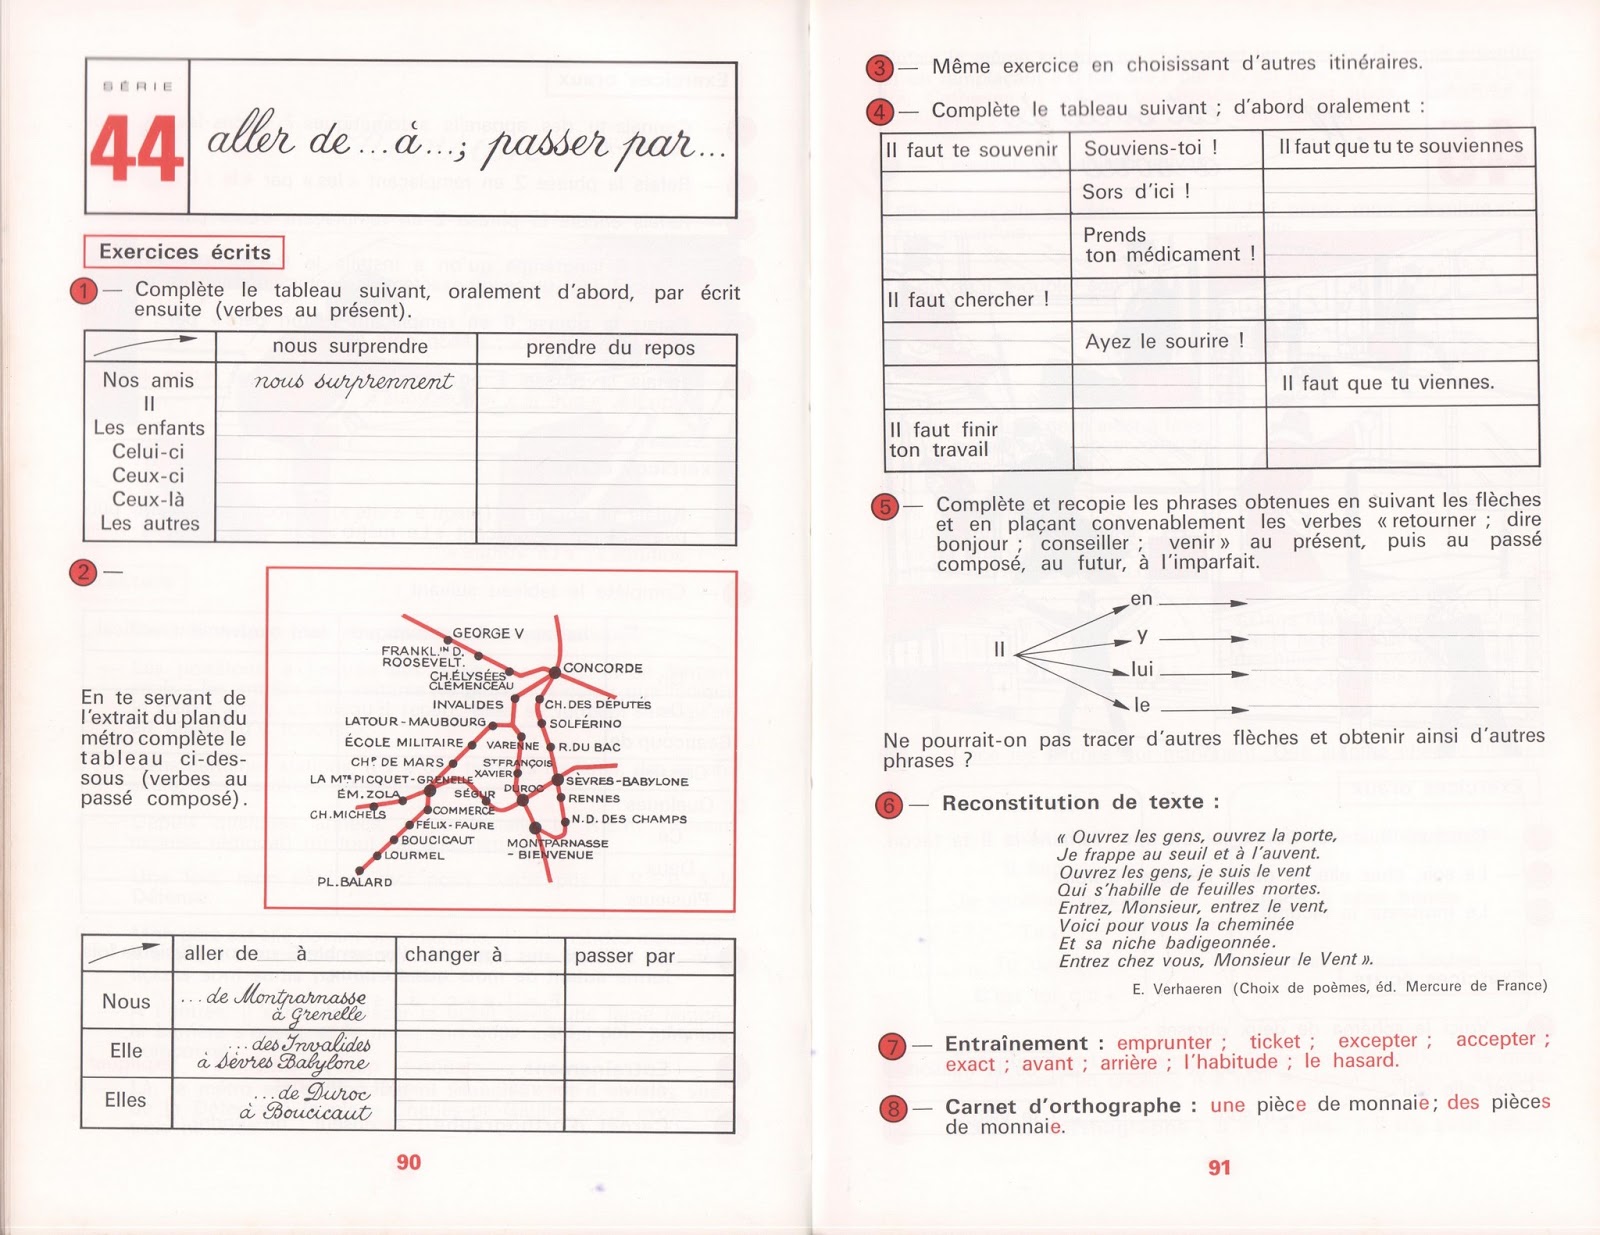 SÉRIE
44
aller de ... à ... ; passer par ...
Exercices écrits
1 — Complète le tableau suivant, oralement d'abord, par écrit
ensuite (verbes au présent).
nous surprendre
prendre du repos
Nos amis
nous surprennent
Il
Les enfants
Celui-ci
Ceux-ci
Ceux-là
Les autres
2 —
En te servant de
l'extrait du plan du
métro complète le
tableau ci-des-
sous (verbes au
passé composé).
GEORGE V
FRANKL.IN D.
ROOSEVELT.
CH.ÉLYSÉES
CLÉMENCEAU
CONCORDE
INVALIDES
CH. DES DÉPUTÉS
LATOUR-MAUBOURG
SOLFÉRINO
ÉCOLE MILITAIRE
VARENNE
R. DU BAC
CHP. DE MARS
ST FRANÇOIS
XAVIER
LA MTE PICQUET-GRENELLE
SÈVRES-BABYLONE
ÉM. ZOLA
SÉGUR
DUROC
RENNES
CH. MICHELS
COMMERCE
N.D. DES CHAMPS
FÉLIX-FAURE
BOUCICAUT
MONTPARNASSE
- BIENVENUE
LOURMEL
PL. BALARD
aller de à
changer à
passer par
Nous
... de Montparnasse
à Grenelle
Elle
... des Invalides
à Sèvres Babylone
Elles
... de Duroc
à Boucicaut
90
3 — Même exercice en choisissant d'autres itinéraires.
4 — Complète le tableau suivant ; d'abord oralement :
Il faut te souvenir
Souviens-toi !
Il faut que tu te souviennes
Sors d'ici !
Prends
ton médicament !
Il faut chercher !
Ayez le sourire !
Il faut que tu viennes.
Il faut finir
ton travail
5 — Complète et recopie les phrases obtenues en suivant les flèches
et en plaçant convenablement les verbes « retourner ; dire
bonjour ; conseiller ; venir » au présent, puis au passé
composé, au futur, à l'imparfait.
en
y
Il
lui
le
Ne pourrait-on pas tracer d'autres flèches et obtenir ainsi d'autres
phrases ?
6 — Reconstitution de texte :
« Ouvrez les gens, ouvrez la porte,
Je frappe au seuil et à l'auvent.
Ouvrez les gens, je suis le vent
Qui s'habille de feuilles mortes.
Entrez, Monsieur, entrez le vent,
Voici pour vous la cheminée
Et sa niche badigeonnée.
Entrez chez vous, Monsieur le Vent ».
E. Verhaeren (Choix de poèmes, éd. Mercure de France)
7 — Entraînement : emprunter ; ticket ; excepter ; accepter ;
exact ; avant ; arrière ; l'habitude ; le hasard.
8 — Carnet d'orthographe : une pièce de monnaie ; des pièces
de monnaie.
91